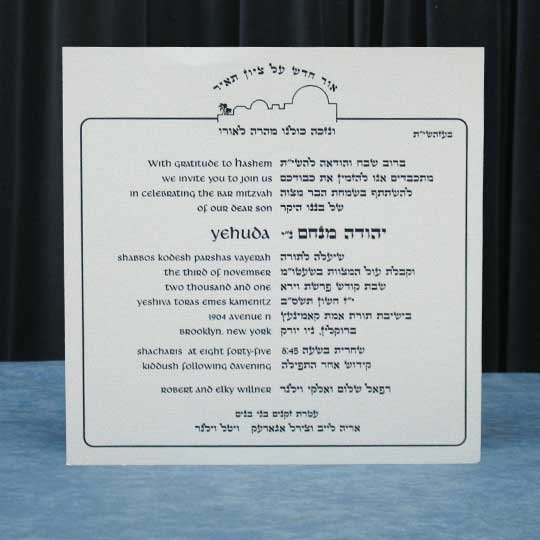 אור חדש על ציון תאיר
ונזכה כולנו מהרה לאורו
בעזהשי"ת
With gratitude to Hashem ברוב שבח והודאה להשי"ת
we invite you to join us מתכבדים אנו להזמין את כבודכם
in celebrating the bar mitzvah להשתתף בשמחת הבר מצוה
of our dear son של בננו היקר
yehuda יהודה מנחם נ"י
shabbos kodesh parshas vayerah שיעלה לתורה
the third of november וקבלת עול המצוות בשעטו"מ
two thousand and one שבת קודש פרשת וירא
yeshiva toras emes kamenitz י"ז חשון תשס"ב
1904 avenue n בישיבת תורה אמת קאמינעץ
brooklyn, new york ברוקלין, ניו יורק
shacharis at eight forty-five שחרית בשעה 8:45
kiddush following davening קידוש אחר התפילה
robert and elky willner רפאל שלום ואלקי וילנר
עטרת זקנים בני בנים
אריה לייב וצירל אגארעק ויטל וילנר